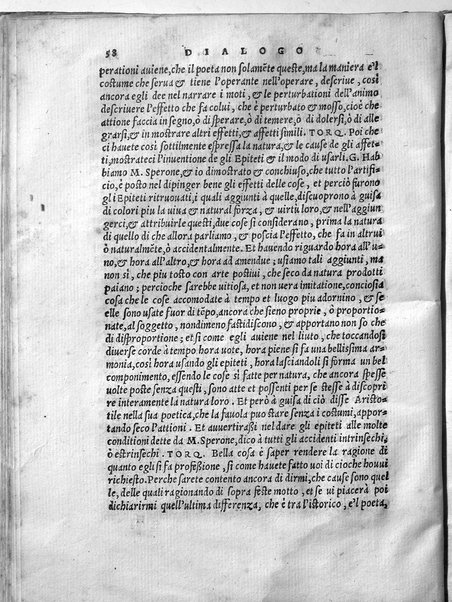 58 DIALOGO
perationi auiene, che il poeta non solamẽte queste, ma la maniera e'l
costume che serua & tiene l'operante nell'operare, descriue, cosi
ancora egli dee nel narrare i moti, & le perturbationi dell'animo
descriuere l'effetto che fa colui, che è perturbato & mosso, cioè che
attione faccia in segno, ò di sperare, ò di temere, ò di dolersi, ò di alle
grarsi, & in mostrare altri effetti, & affetti simili. TORQ. Poi che
ci hauete così sottilmente espressa la natura, & le cause de gli affet
ti, mostrateci l'inuentione de gli Epiteti & il modo di usarli. G. Hab
biamo M. Sperone, & io dimostrato & conchiuso, che tutto l'artifi=
cio, è posto nel dipinger bene gli effetti delle cose, et perciò furono
gli Epiteti ritruouati, i quali aggiunti à quelle, discuoprono à guisa
di colori piu la uiua & natural forza, & uirtù loro, & nell'aggiun
gerci, & attribuirle questi, due cose si considerano, prima la natura
di quello di che allora parliamo, & poscia l'effetto, che fa in altrui
ò naturalmẽte, ò accidentalmente. Et hauendo riguardo hora all'u=
no, & hora all'altro, & hora ad amendue; usiamo tali aggiunti, ma
non sì, che piu tosto con arte postiui, che seco da natura prodotti
paiano; percioche sarebbe uitiosa, et non uera imitatione, conciosia
cosa che le cose accomodate à tempo et luogo piu adornino, & se
elle sono usate fuor di tẽpo, ancora che sieno proprie, ò proportio=
nate, al soggetto, nondimeno fastidiscono, & apportano non so che
di disproportione; et sì come egli auiene nel liuto, che toccandosi
diuerse corde à tempo hora uote, hora piene si fa una bellissima ar=
monia, così hora usando gli epiteti, hora lasciandoli si forma un bel
componimento, essendo le cose sì fatte per natura, che ancora spesse
uolte poste senza questi, sono atte et possenti per se stesse à discopri
re interamente la natura loro. Et però à guisa di ciò disse Aristo=
tile nella sua poetica, che la fauola puo stare senza i costumi, appor=
tando seco l'attioni. Et auuertirassi nel dare gli epiteti alle molte
conditioni dette da M. Sperone, dico à tutti gli accidenti intrinsechi,
ò estrinsechi. TORQ. Bella cosa è saper rendere la ragione di
quanto egli si fa professione, sì come hauete fatto uoi di cioche houui
richiesto. Perche sarete contento ancora di dirmi, che cause sono quel
le, delle quai ragionando di sopra feste motto, et se ui piacerà poi
dichiarirmi quell'ultima differenza, che è tra l'istorico, e'l poeta,